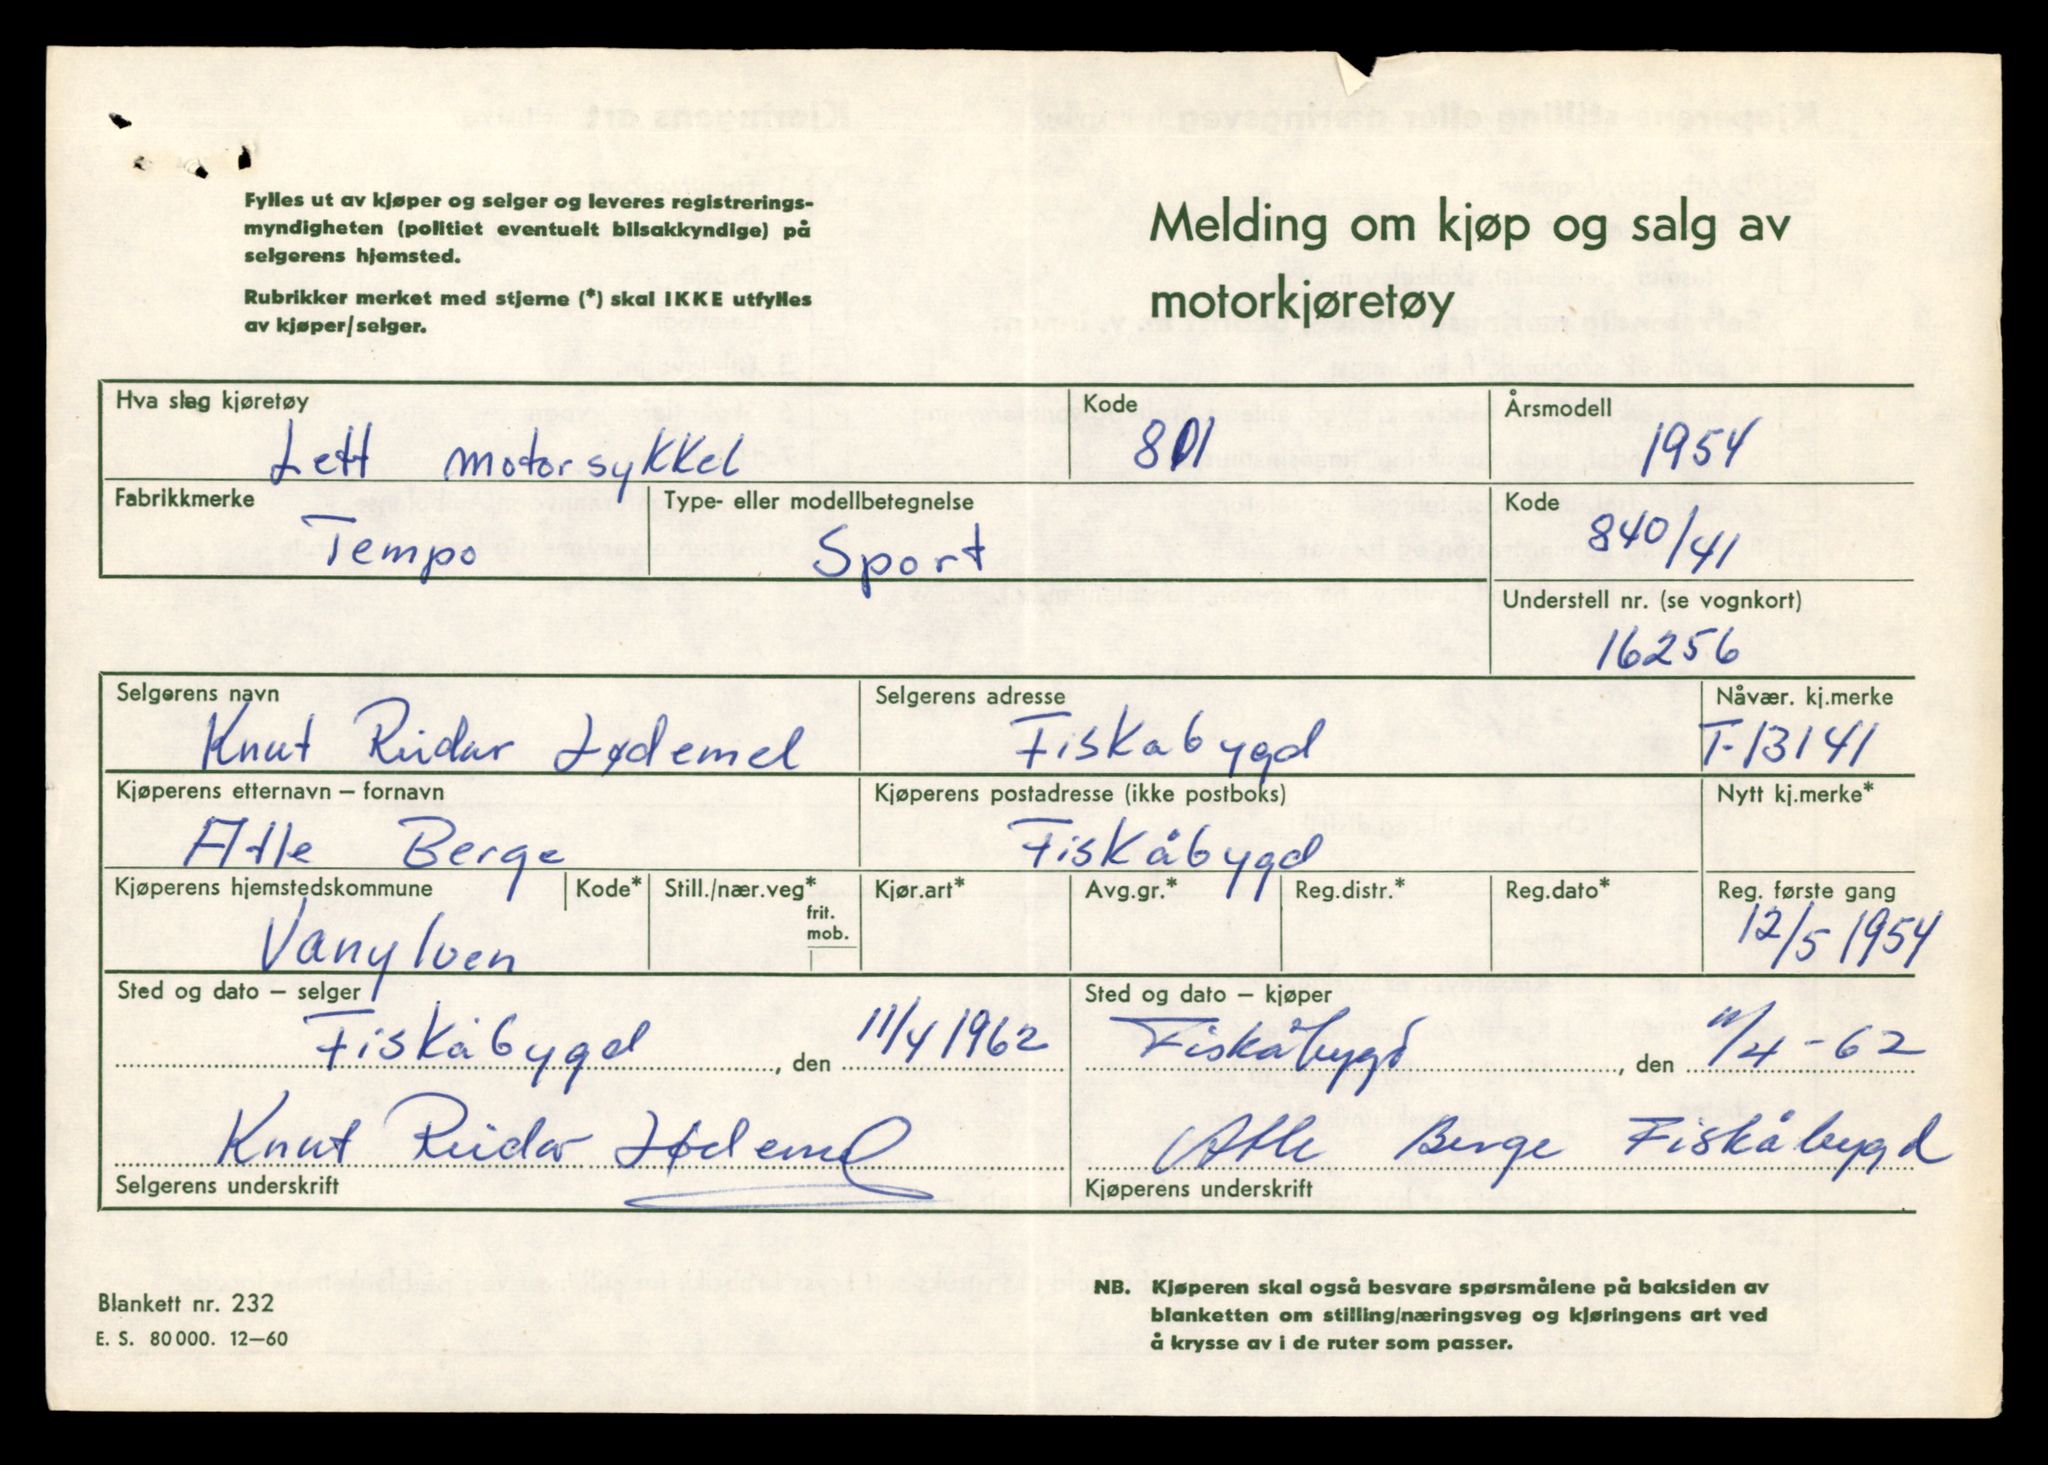 Fylles ut av kjøper og selger og leveres registrerings-
myndigheten (politiet eventuelt bilsakkyndige) på
selgerens hjemsted.
Rubrikker merket med stjerne (*) skal IKKE utfylles
av kjøper/selger.
Melding om kjøp og salg av
motorkjøretøy
Hva slag kjøretøy
Lett motorsykkel
Kode
801
Årsmodell
1954
Fabrikkmerke
Tempo
Type- eller modellbetegnelse
Sport
Kode
840/41
Understell nr. (se vognkort)
16256
Selgerens navn
Knut Reidar Lødemel
Selgerens adresse
Fiskåbygd
Nåvær. kj.merke
T-13141
Kjøperens etternavn – fornavn
Atle Berge
Kjøperens postadresse (ikke postboks)
Fiskåbygd
Nytt kj.merke*
Kjøperens hjemstedskommune
Vanylven
Kode*
Still./nær.veg*
frit.
mob.
Kjør.art*
Avg.gr.*
Reg.distr.*
Reg.dato*
Reg. første gang
12/5 1954
Sted og dato – selger
Fiskåbygd, den 11/4 1962
Sted og dato – kjøper
Fiskåbygd, den 11/4-62
Knut Reidar Lødemel
Selgerens underskrift
Atle Berge Fiskåbygd
Kjøperens underskrift
Blankett nr. 232
E. S. 80 000. 12–60
NB. Kjøperen skal også besvare spørsmålene på baksiden av
blanketten om stilling/næringsveg og kjøringens art ved
å krysse av i de ruter som passer.